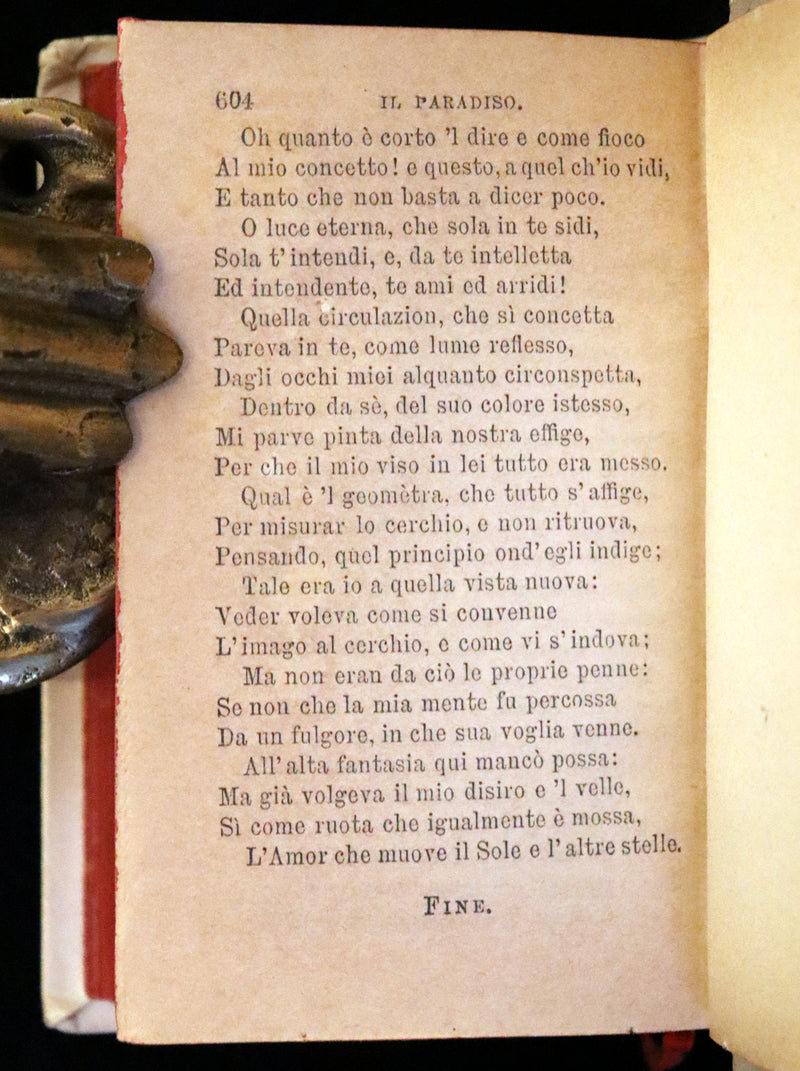 604 IL PARADISO.
Oh quanto è corto 'l dire e come fioco
Al mio concetto! e questo, a quel ch'io vidi,
E tanto che non basta a dicer poco.
O luce eterna, che sola in te sidi,
Sola t' intendi, e, da te intelletta
Ed intendente, te ami ed arridi!
Quella circulazion, che sì concetta
Pareva in te, come lume reflesso,
Dagli occhi miei alquanto circonspetta,
Dentro da sè, del suo colore istesso,
Mi parve pinta della nostra effige,
Per che il mio viso in lei tutto era messo.
Qual è 'l geomètra, che tutto s' affige,
Per misurar lo cerchio, e non ritruova,
Pensando, quel principio ond' egli indige;
Tale era io a quella vista nuova:
Veder voleva come si convenne
L' imago al cerchio, e come vi s' indova;
Ma non eran da ciò le proprie penne:
Se non che la mia mente fu percossa
Da un fulgore, in che sua voglia venne.
All' alta fantasia qui mancò possa:
Ma già volgeva il mio disiro e 'l velle,
Sì come ruota che igualmente è mossa,
L'Amor che muove il Sole e l' altre stelle.
FINE.